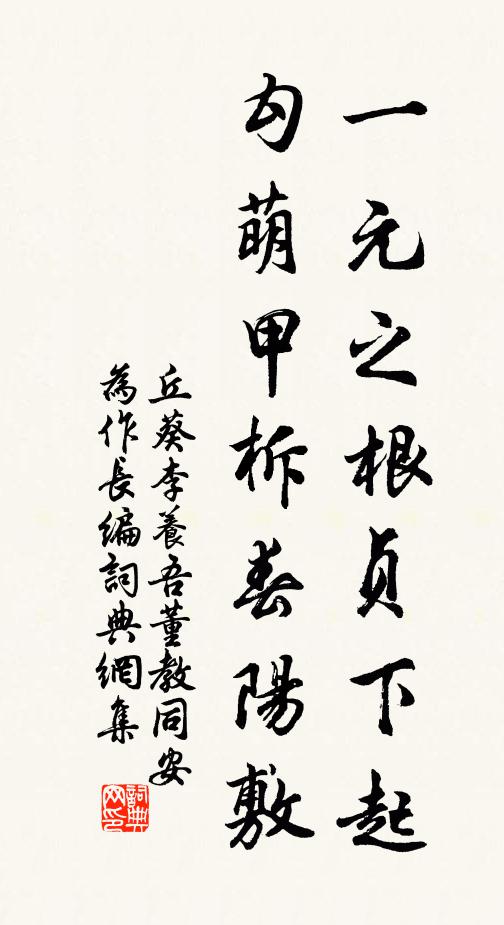 一元之根貞下起
勾萌甲柝春陽敷
丘葵李養吾董教同安
為作長編詞典網集
詞典網印